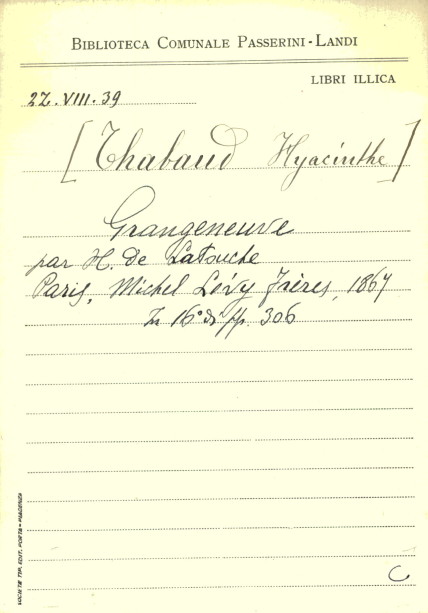 BIBLIOTECA COMUNALE PASSERINI-LANDI
LIBRI ILLICA
22.VIII.39
[Thabaud Hyacinthe]
Grangeneuve
par H. de Latouche
Paris, Michel Lévy Frères, 1867
In 16° di pp. 306
C